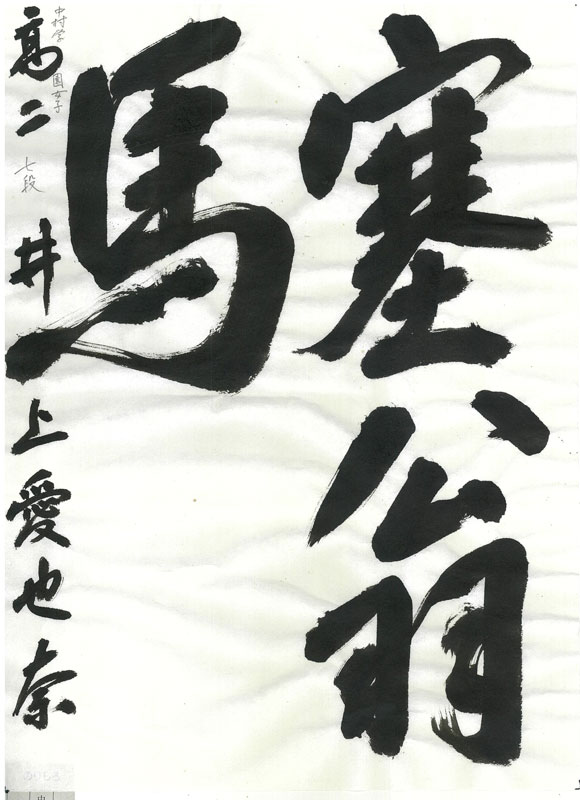 塞翁
馬
高二 井上愛也奈
中村学園女子
七段